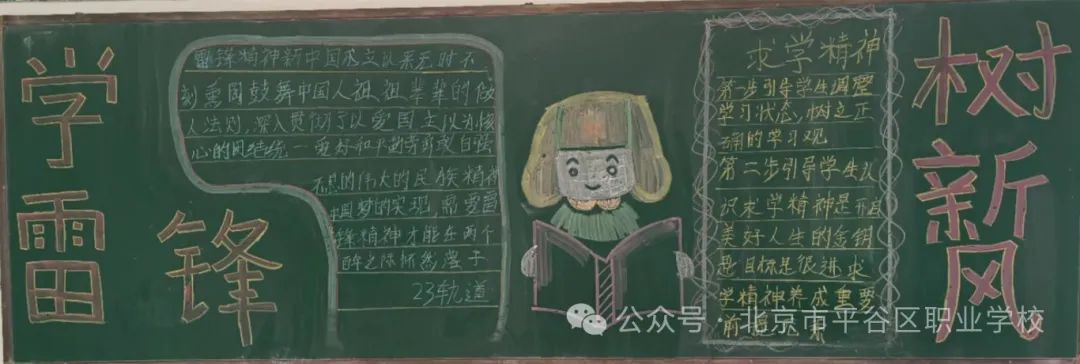 学雷锋
雷锋精神新中国成立以来无时不
刻爱国鼓舞中国人祖祖辈辈的做
人法则,深入贯彻了以爱国主以为核
心的团结统一爱好和平勤劳
的伟大的民族精神
中国梦的实现,需要雷
锋精神才能在两个
百年之际怀然
23轨道
求学精神
第一步引导学生调整
学习状态,树立正
确的学习观
第二步引导学生认
识求学精神是开启
美好人生的金钥
匙目标是很进求
学精神养成重要
前提
树新风
公众号·北京市平谷区职业学校